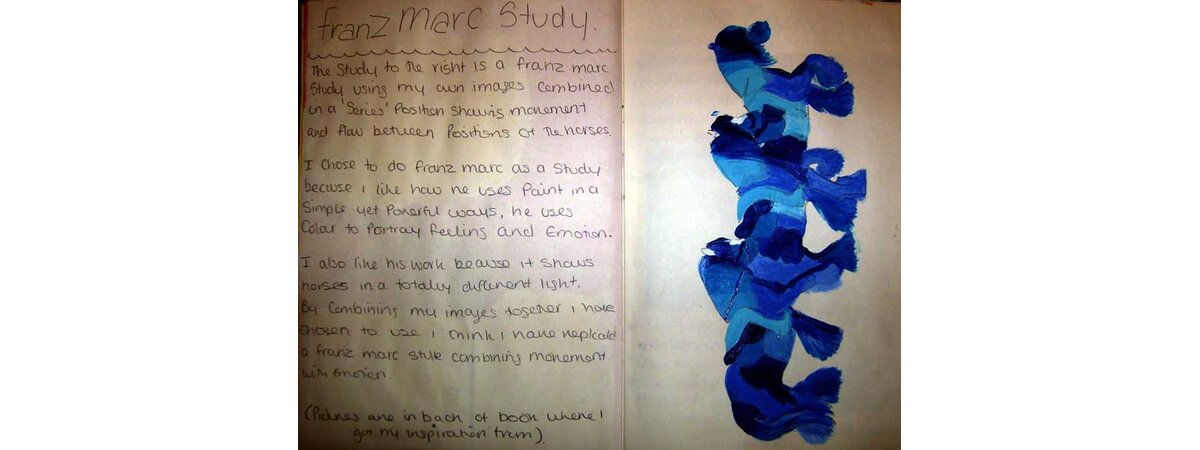 franz Marc Study.
The Study to the right is a franz marc
Study using my own images combined
in a 'Series' Position Showing movement
and flow between Positions of the horses.
I chose to do franz marc as a Study
because I like how he uses Paint in a
Simple yet Powerful ways, he uses
Color to Portray feeling and Emotion.
I also like his work because it Shows
horses in a totally different light.
By Combining my images together I have
chosen to use I think I have replicated
a franz marc style combining movement
with Emotion.
(Pictures are in back of book where I
got my inspiration from).